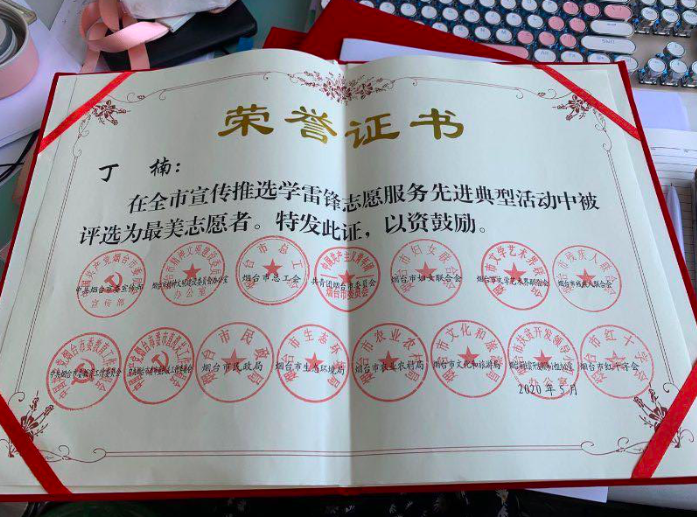 荣誉证书
丁 楠：
在全市宣传推选学雷锋志愿服务先进典型活动中被
评选为最美志愿者。特发此证，以资鼓励。
烟台市总工会 共青团烟台市委员会 烟台市妇女联合会 烟台市文学艺术界联合会 烟台市残疾人联合会
烟台市民政局 烟台市生态环境局 烟台市农业农村局 烟台市文化和旅游局 烟台市红十字会
2020年 月